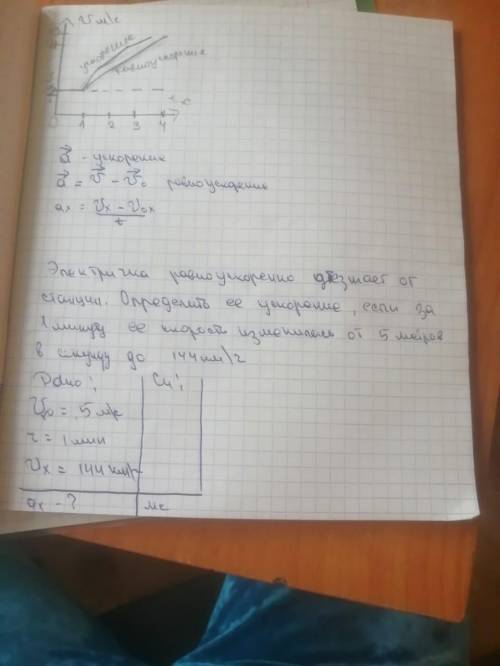 V м/с
ускорение
равноускорение
1 2 3 4
a⃗ - ускорение
a⃗ = v⃗ - v⃗₀ равноускорение
aₓ = Vₓ - V₀ₓ
t
Электричка равноускоренно отъезжает от
станции. Определить ее ускорение, если за
1 минуту ее скорость изменилась от 5 метров
в секунду до 144 км/г
Дано: Си:
V₀ = 5 м/с
t = 1 мин
Vₓ = 144 км/г
aₓ - ? мс